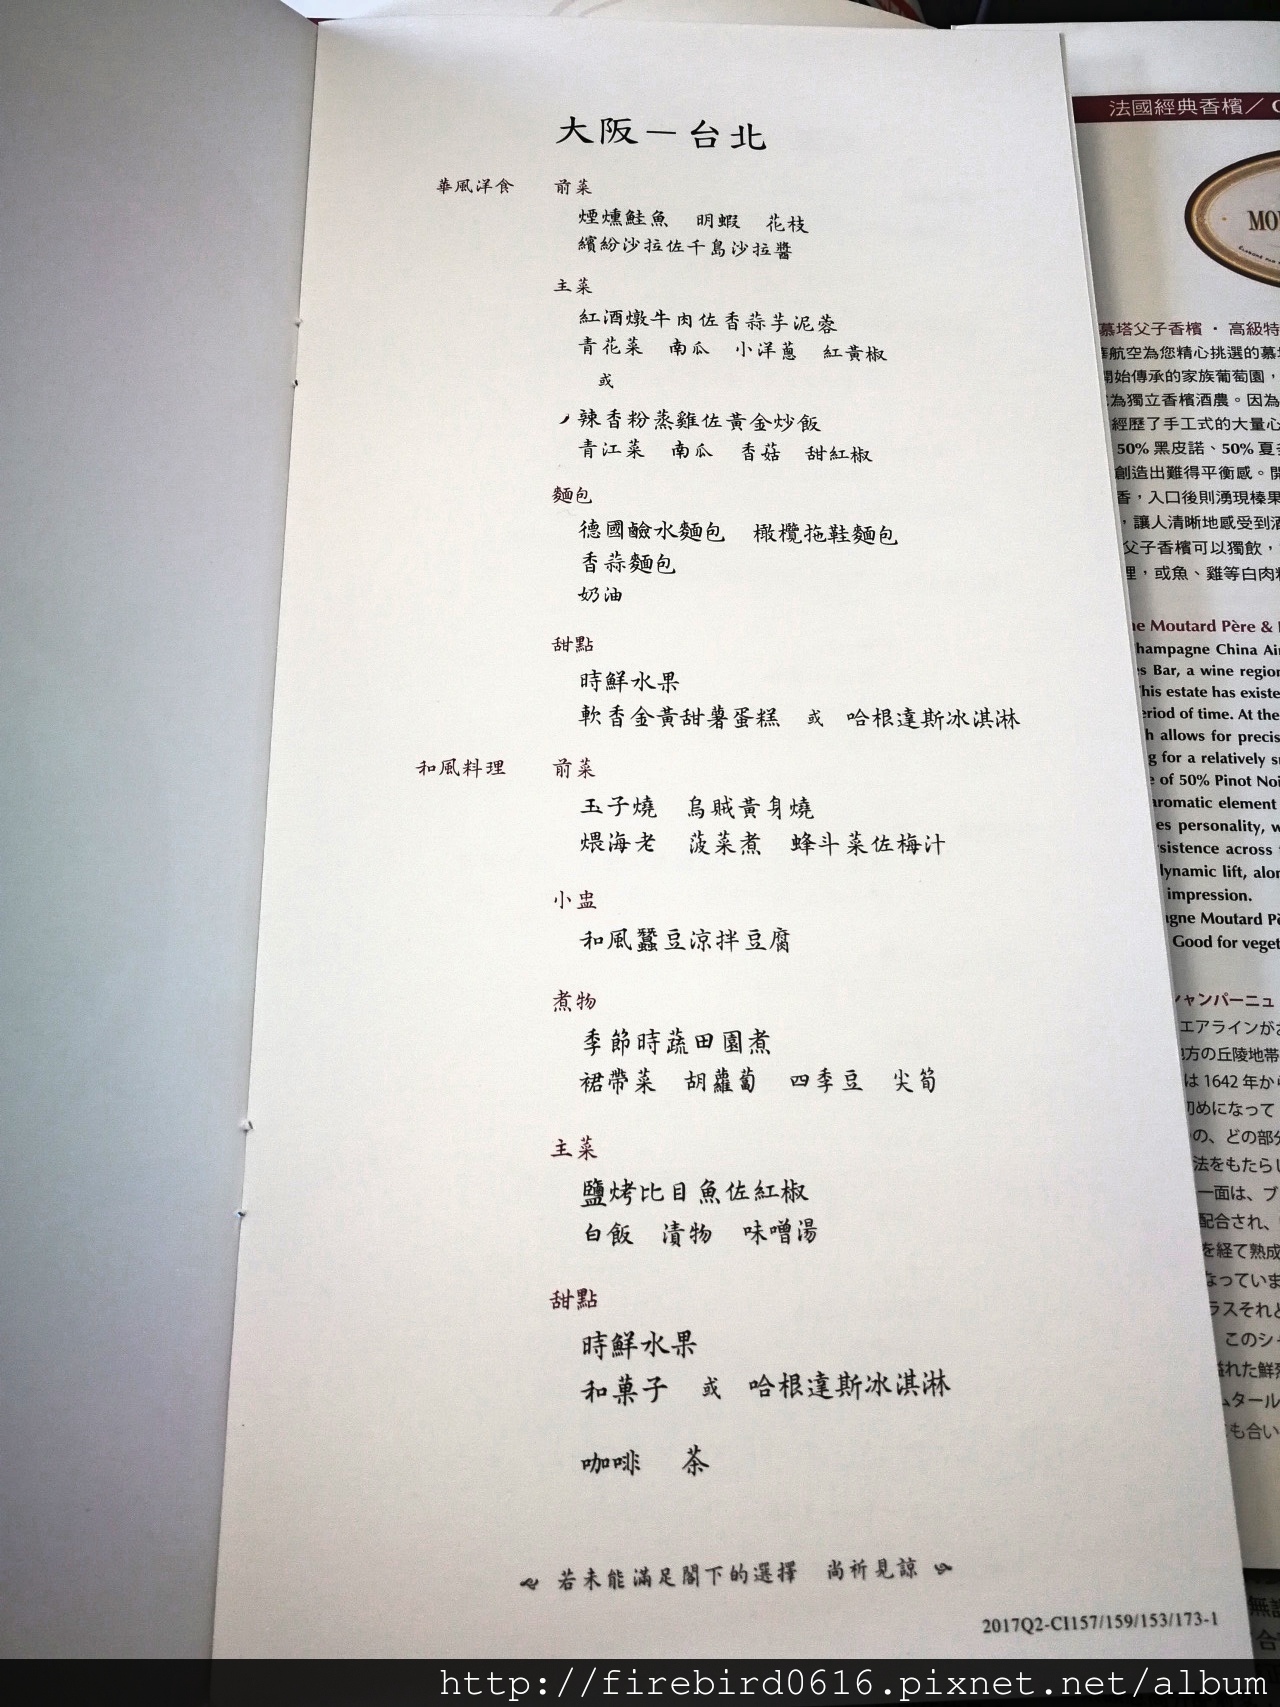 大阪－台北
華風洋食 前菜
煙燻鮭魚 明蝦 花枝
繽紛沙拉佐千島沙拉醬
主菜
紅酒燉牛肉佐香蒜芋泥蓉
青花菜 南瓜 小洋蔥 紅黃椒
或
辣香粉蒸雞佐黃金炒飯
青江菜 南瓜 香菇 甜紅椒
麵包
德國鹼水麵包 橄欖拖鞋麵包
香蒜麵包
奶油
甜點
時鮮水果
軟香金黃甜薯蛋糕 或 哈根達斯冰淇淋
和風料理 前菜
玉子燒 烏賊黃身燒
煨海老 菠菜煮 蜂斗菜佐梅汁
小盅
和風蠶豆涼拌豆腐
煮物
季節時蔬田園煮
裙帶菜 胡蘿蔔 四季豆 尖筍
主菜
鹽烤比目魚佐紅椒
白飯 漬物 味噌湯
甜點
時鮮水果
和菓子 或 哈根達斯冰淇淋
咖啡 茶
若未能滿足閣下的選擇 尚祈見諒
2017Q2-CI157/159/153/173-1
法國經典香檳／
MO
慕塔父子香檳・高級特
航空為您精心挑選的慕
開始傳承的家族葡萄園，
為獨立香檳酒農。因為
經歷了手工式的大量心
50% 黑皮諾、50% 夏
創造出難得平衡感。開
香，入口後則湧現榛果
，讓人清晰地感受到酒
父子香檳可以獨飲，
理，或魚、雞等白肉料
ne Moutard Père &
hampagne China Air
es Bar, a wine region
This estate has existe
eriod of time. At the
h allows for precis
g for a relatively s
e of 50% Pinot Noi
aromatic element
es personality, w
rsistence across
dynamic lift, alon
impression.
agne Moutard Pè
Good for veget
シャンパーニュ
エアラインがお
地方の丘陵地帯
は 1642 年から
初めになって
の、どの部分
法をもたらし
一面は、ブ
配合され、
を経て熟成
なっていま
ラスそれと
このシャ
溢れた鮮
ムタール
も合い
http://firebird0616.pixnet.net/album